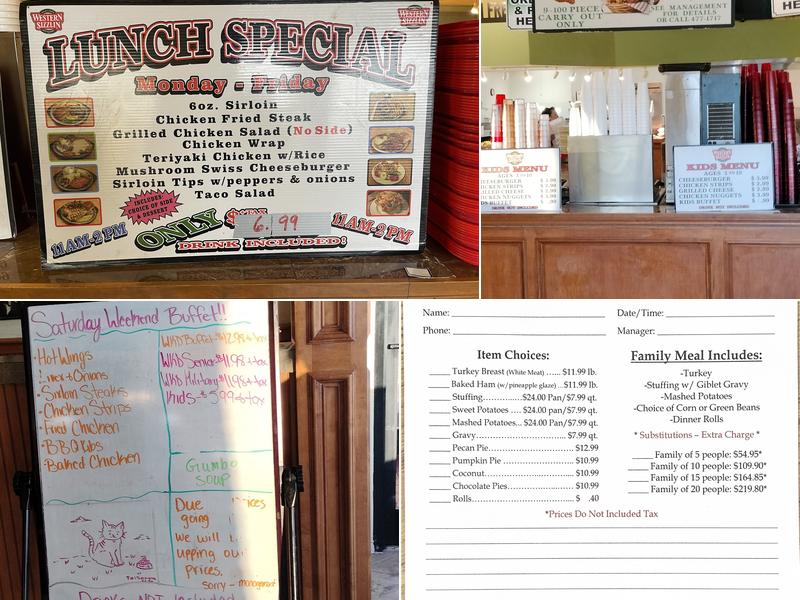 WESTERN SIZZLIN
WESTERN SIZZLIN
LUNCH SPECIAL
Monday - Friday
6oz. Sirloin
Chicken Fried Steak
Grilled Chicken Salad (No Side)
Chicken Wrap
Teriyaki Chicken w/Rice
Mushroom Swiss Cheeseburger
Sirloin Tips w/peppers & onions
Taco Salad
INCLUDES: CHOICE OF SIDE & DESSERT
11AM-2PM ONLY 6.99 11AM-2PM
DRINK INCLUDED!
9-100 PIECE
CARRY OUT
ONLY
SEE MANAGEMENT
FOR DETAILS
OR CALL 477-1747
KIDS MENU
CHEESEBURGER
CHICKEN STRIPS
GRILLED CHEESE
CHICKEN NUGGETS
KIDS BUFFET
DRINK NOT INCLUDED
KIDS MENU
CHEESEBURGER
CHICKEN STRIPS
GRILLED CHEESE
CHICKEN NUGGETS
KIDS BUFFET
DRINK NOT INCLUDED
Saturday Weekend Buffet!!
-Hot Wings
Onions
-Sirloin Steaks
-Chicken Strips
-Fried Chicken
-BBQ Ribs
-Baked Chicken
WKD Buffet-$12.98+tax
WKD Senior-$11.98+tax
WKD Military-$11.98+tax
Kids-$5.99+tax
Gumbo
Soup
Due
going
we will
upping our
prices.
sorry - management
Drinks NOT Included
Name:
Date/Time:
Phone:
Manager:
Item Choices:
Turkey Breast (White Meat) ...... $11.99 lb.
Baked Ham (w/pineapple glaze) ...$11.99 lb.
Stuffing...............$24.00 Pan/$7.99 qt.
Sweet Potatoes .... $24.00 pan/$7.99 qt.
Mashed Potatoes... $24.00 Pan/$7.99 qt.
Gravy............................... $7.99 qt.
Pecan Pie............................ $12.99
Pumpkin Pie ....................... $10.99
Coconut.............................. $10.99
Chocolate Pies..................... $10.99
Rolls................................... $ .40
Family Meal Includes:
-Turkey
-Stuffing w/ Giblet Gravy
-Mashed Potatoes
-Choice of Corn or Green Beans
-Dinner Rolls
* Substitutions – Extra Charge *
Family of 5 people: $54.95*
Family of 10 people: $109.90*
Family of 15 people: $164.85*
Family of 20 people: $219.80*
*Prices Do Not Included Tax